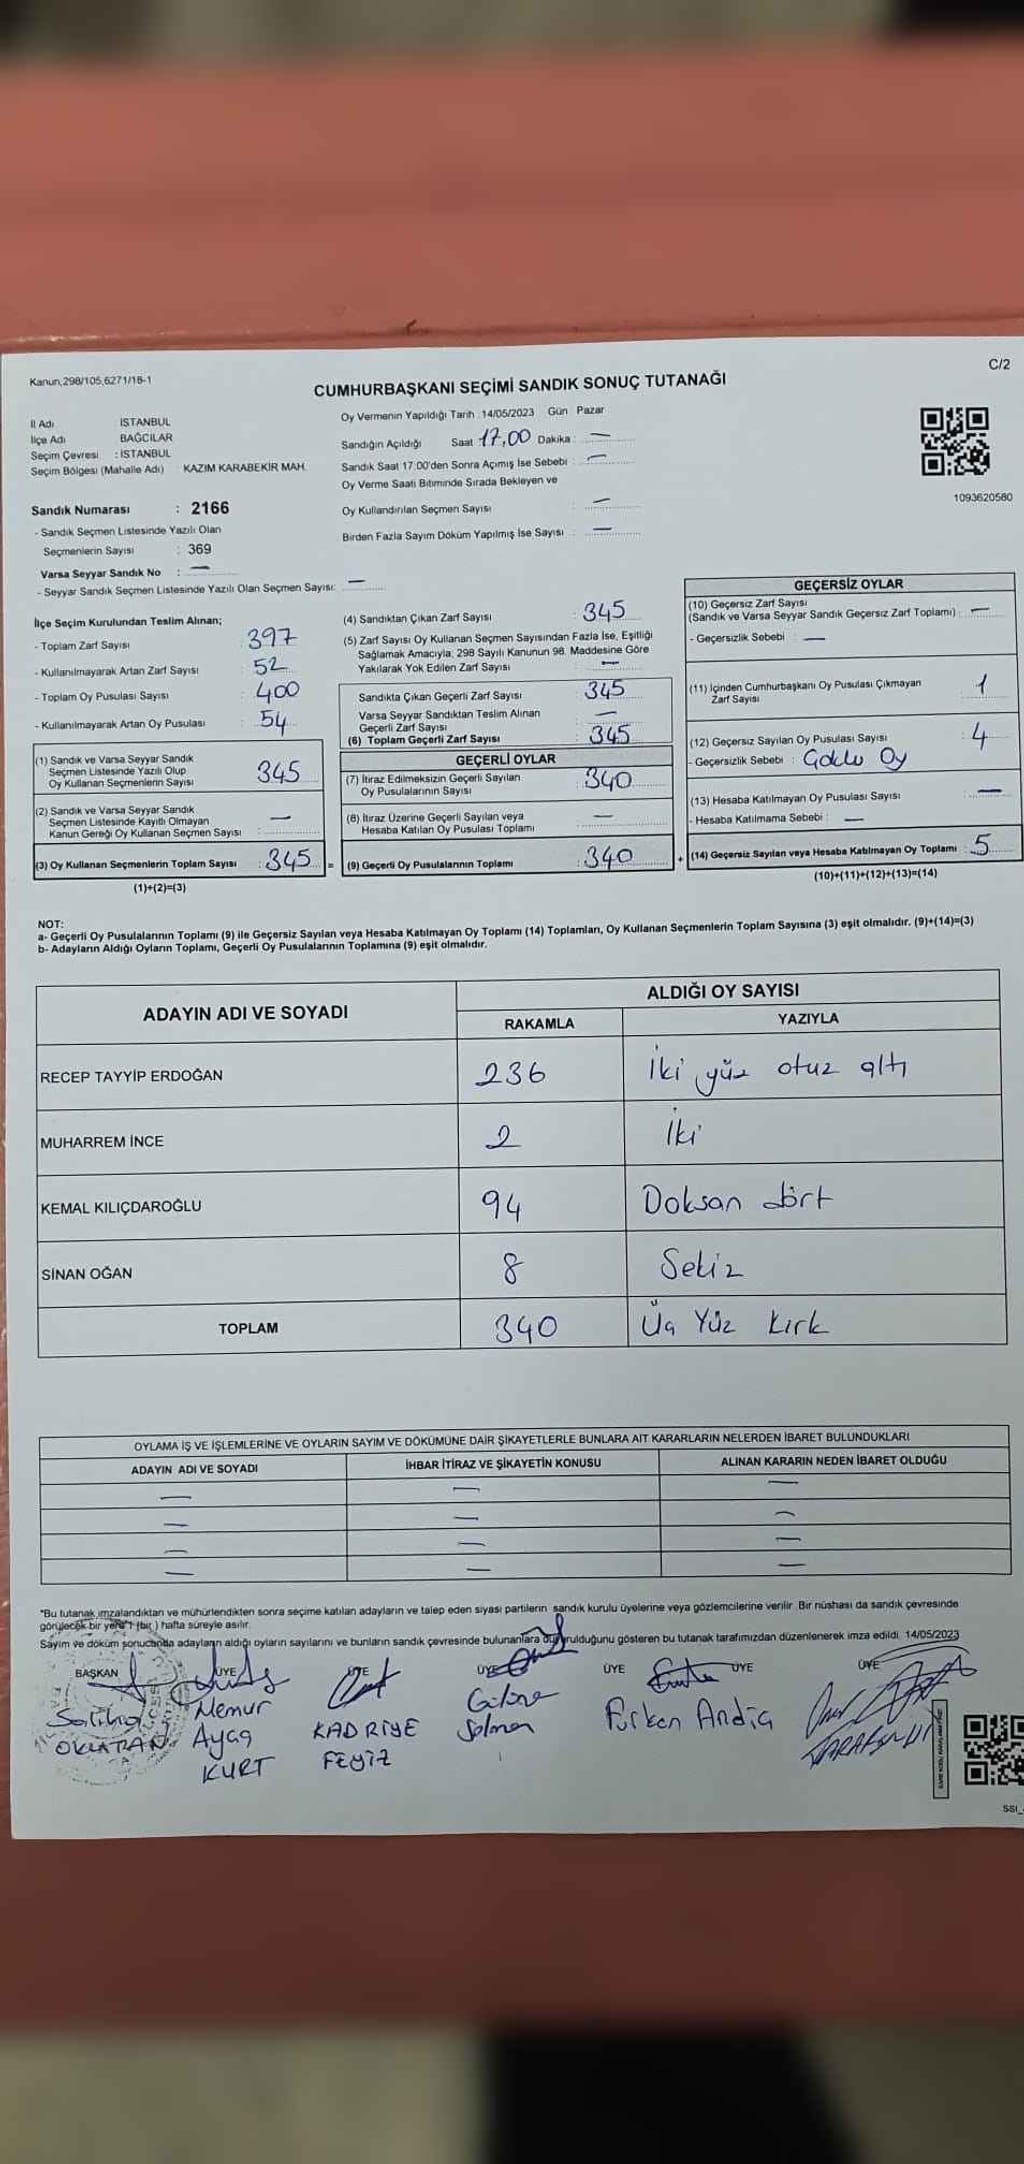 Kanun,298/105,6271/18-1
C/2
CUMHURBAŞKANI SEÇİMİ SANDIK SONUÇ TUTANAĞI
İl Adı İSTANBUL
İlçe Adı BAĞCILAR
Seçim Çevresi : İSTANBUL
Seçim Bölgesi (Mahalle Adı) KAZIM KARABEKİR MAH.
Oy Vermenin Yapıldığı Tarih : 14/05/2023 Gün Pazar
Sandığın Açıldığı Saat 17,00 Dakika : —
Sandık Saat 17:00'den Sonra Açımış İse Sebebi : —
Oy Verme Saati Bitiminde Sırada Bekleyen ve
Oy Kullandırılan Seçmen Sayısı : —
Birden Fazla Sayım Döküm Yapılmış İse Sayısı : —
1093620580
Sandık Numarası : 2166
- Sandık Seçmen Listesinde Yazılı Olan
Seçmenlerin Sayısı : 369
Varsa Seyyar Sandık No : —
- Seyyar Sandık Seçmen Listesinde Yazılı Olan Seçmen Sayısı: —
İlçe Seçim Kurulundan Teslim Alınan;
- Toplam Zarf Sayısı : 397
- Kullanılmayarak Artan Zarf Sayısı : 52
- Toplam Oy Pusulası Sayısı : 400
- Kullanılmayarak Artan Oy Pusulası : 54
(1) Sandık ve Varsa Seyyar Sandık
Seçmen Listesinde Yazılı Olup
Oy Kullanan Seçmenlerin Sayısı : 345
(2) Sandık ve Varsa Seyyar Sandık
Seçmen Listesinde Kayıtlı Olmayan
Kanun Gereği Oy Kullanan Seçmen Sayısı : —
(3) Oy Kullanan Seçmenlerin Toplam Sayısı : 345 =
(1)+(2)=(3)
(4) Sandıktan Çıkan Zarf Sayısı : 345
(5) Zarf Sayısı Oy Kullanan Seçmen Sayısından Fazla İse, Eşitliği
Sağlamak Amacıyla; 298 Sayılı Kanunun 98. Maddesine Göre
Yakılarak Yok Edilen Zarf Sayısı : —
Sandıkta Çıkan Geçerli Zarf Sayısı : 345
Varsa Seyyar Sandıktan Teslim Alınan
Geçerli Zarf Sayısı : —
(6) Toplam Geçerli Zarf Sayısı : 345
GEÇERLİ OYLAR
(7) İtiraz Edilmeksizin Geçerli Sayılan
Oy Pusulalarının Sayısı : 340
(8) İtiraz Üzerine Geçerli Sayılan veya
Hesaba Katılan Oy Pusulası Toplamı : —
(9) Geçerli Oy Pusulalarının Toplamı : 340 +
GEÇERSİZ OYLAR
(10) Geçersiz Zarf Sayısı
(Sandık ve Varsa Seyyar Sandık Geçersiz Zarf Toplamı) : —
- Geçersizlik Sebebi : —
(11) İçinden Cumhurbaşkanı Oy Pusulası Çıkmayan
Zarf Sayısı : 1
(12) Geçersiz Sayılan Oy Pusulası Sayısı : 4
- Geçersizlik Sebebi : Goklu Oy
(13) Hesaba Katılmayan Oy Pusulası Sayısı : —
- Hesaba Katılmama Sebebi : —
(14) Geçersiz Sayılan veya Hesaba Katılmayan Oy Toplamı : 5
(10)+(11)+(12)+(13)=(14)
NOT:
a- Geçerli Oy Pusulalarının Toplamı (9) ile Geçersiz Sayılan veya Hesaba Katılmayan Oy Toplamı (14) Toplamları, Oy Kullanan Seçmenlerin Toplam Sayısına (3) eşit olmalıdır. (9)+(14)=(3)
b- Adayların Aldığı Oyların Toplamı, Geçerli Oy Pusulalarının Toplamına (9) eşit olmalıdır.
ADAYIN ADI VE SOYADI ALDIĞI OY SAYISI
RAKAMLA YAZIYLA
RECEP TAYYİP ERDOĞAN 236 İki yüz otuz altı
MUHARREM İNCE 2 İki
KEMAL KILIÇDAROĞLU 94 Doksan dört
SİNAN OĞAN 8 Sekiz
TOPLAM 340 Üç Yüz kırk
OYLAMA İŞ VE İŞLEMLERİNE VE OYLARIN SAYIM VE DÖKÜMÜNE DAİR ŞİKAYETLERLE BUNLARA AİT KARARLARIN NELERDEN İBARET BULUNDUKLARI
ADAYIN ADI VE SOYADI İHBAR İTİRAZ VE ŞİKAYETİN KONUSU ALINAN KARARIN NEDEN İBARET OLDUĞU
— — —
— — —
— — —
— — —
*Bu tutanak imzalandıktan ve mühürlendikten sonra seçime katılan adayların ve talep eden siyasi partilerin sandık kurulu üyelerine veya gözlemcilerine verilir. Bir nüshası da sandık çevresinde
görülecek bir yere 1 (bir) hafta süreyle asılır.
Sayım ve döküm sonucunda adayların aldığı oyların sayılarını ve bunların sandık çevresinde bulunanlara duyurulduğunu gösteren bu tutanak tarafımızdan düzenlenerek imza edildi. 14/05/2023
BAŞKAN ÜYE ÜYE ÜYE ÜYE ÜYE ÜYE
Memur
Ayag
KURT
KADRİYE
FEYİZ
Furkan Andiç